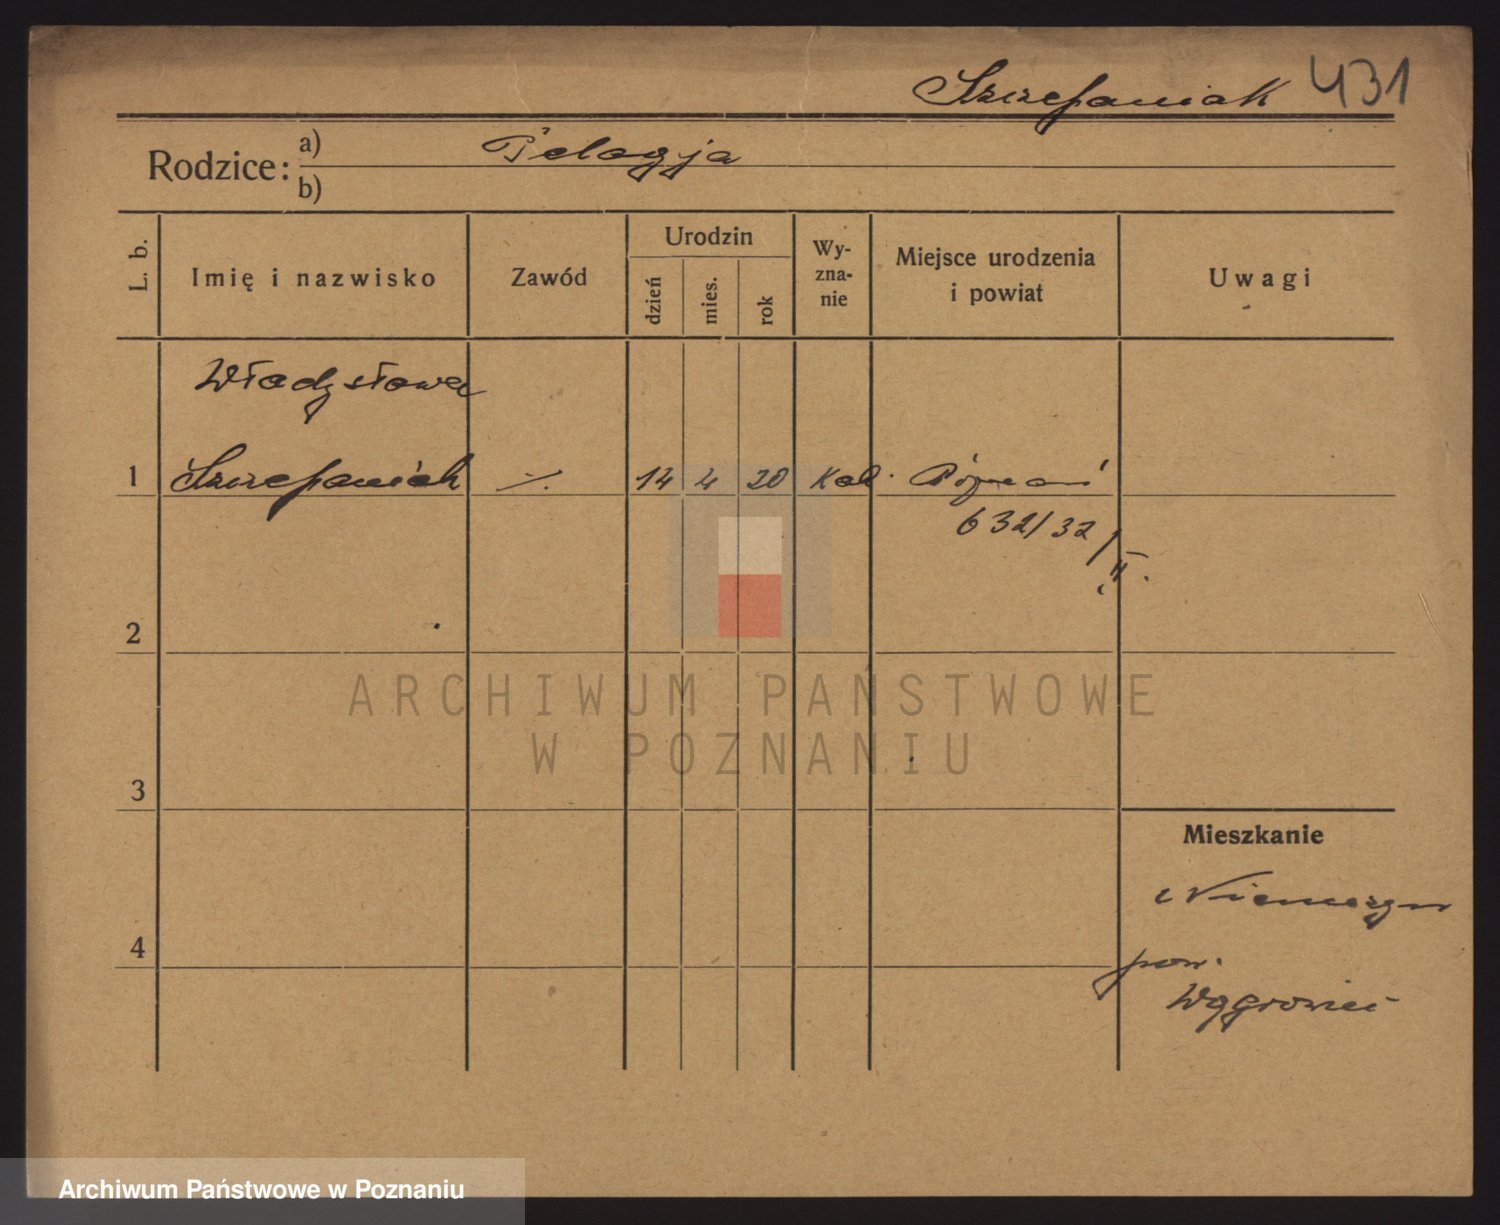 Szczepaniak 431
Rodzice: a) Pelagja
b)
L. b.
Imię i nazwisko
Zawód
Urodzin
dzień
mies.
rok
Wy-
zna-
nie
Miejsce urodzenia
i powiat
Uwagi
Władysława
1 Szczepaniak ./. 14 4 20 Kat. Poznań
632/32/II.
2
ARCHIWUM PAŃSTWOWE
W POZNANIU
3
Mieszkanie
Niemczyn
4
pow.
Wągrowiec
Archiwum Państwowe w Poznaniu